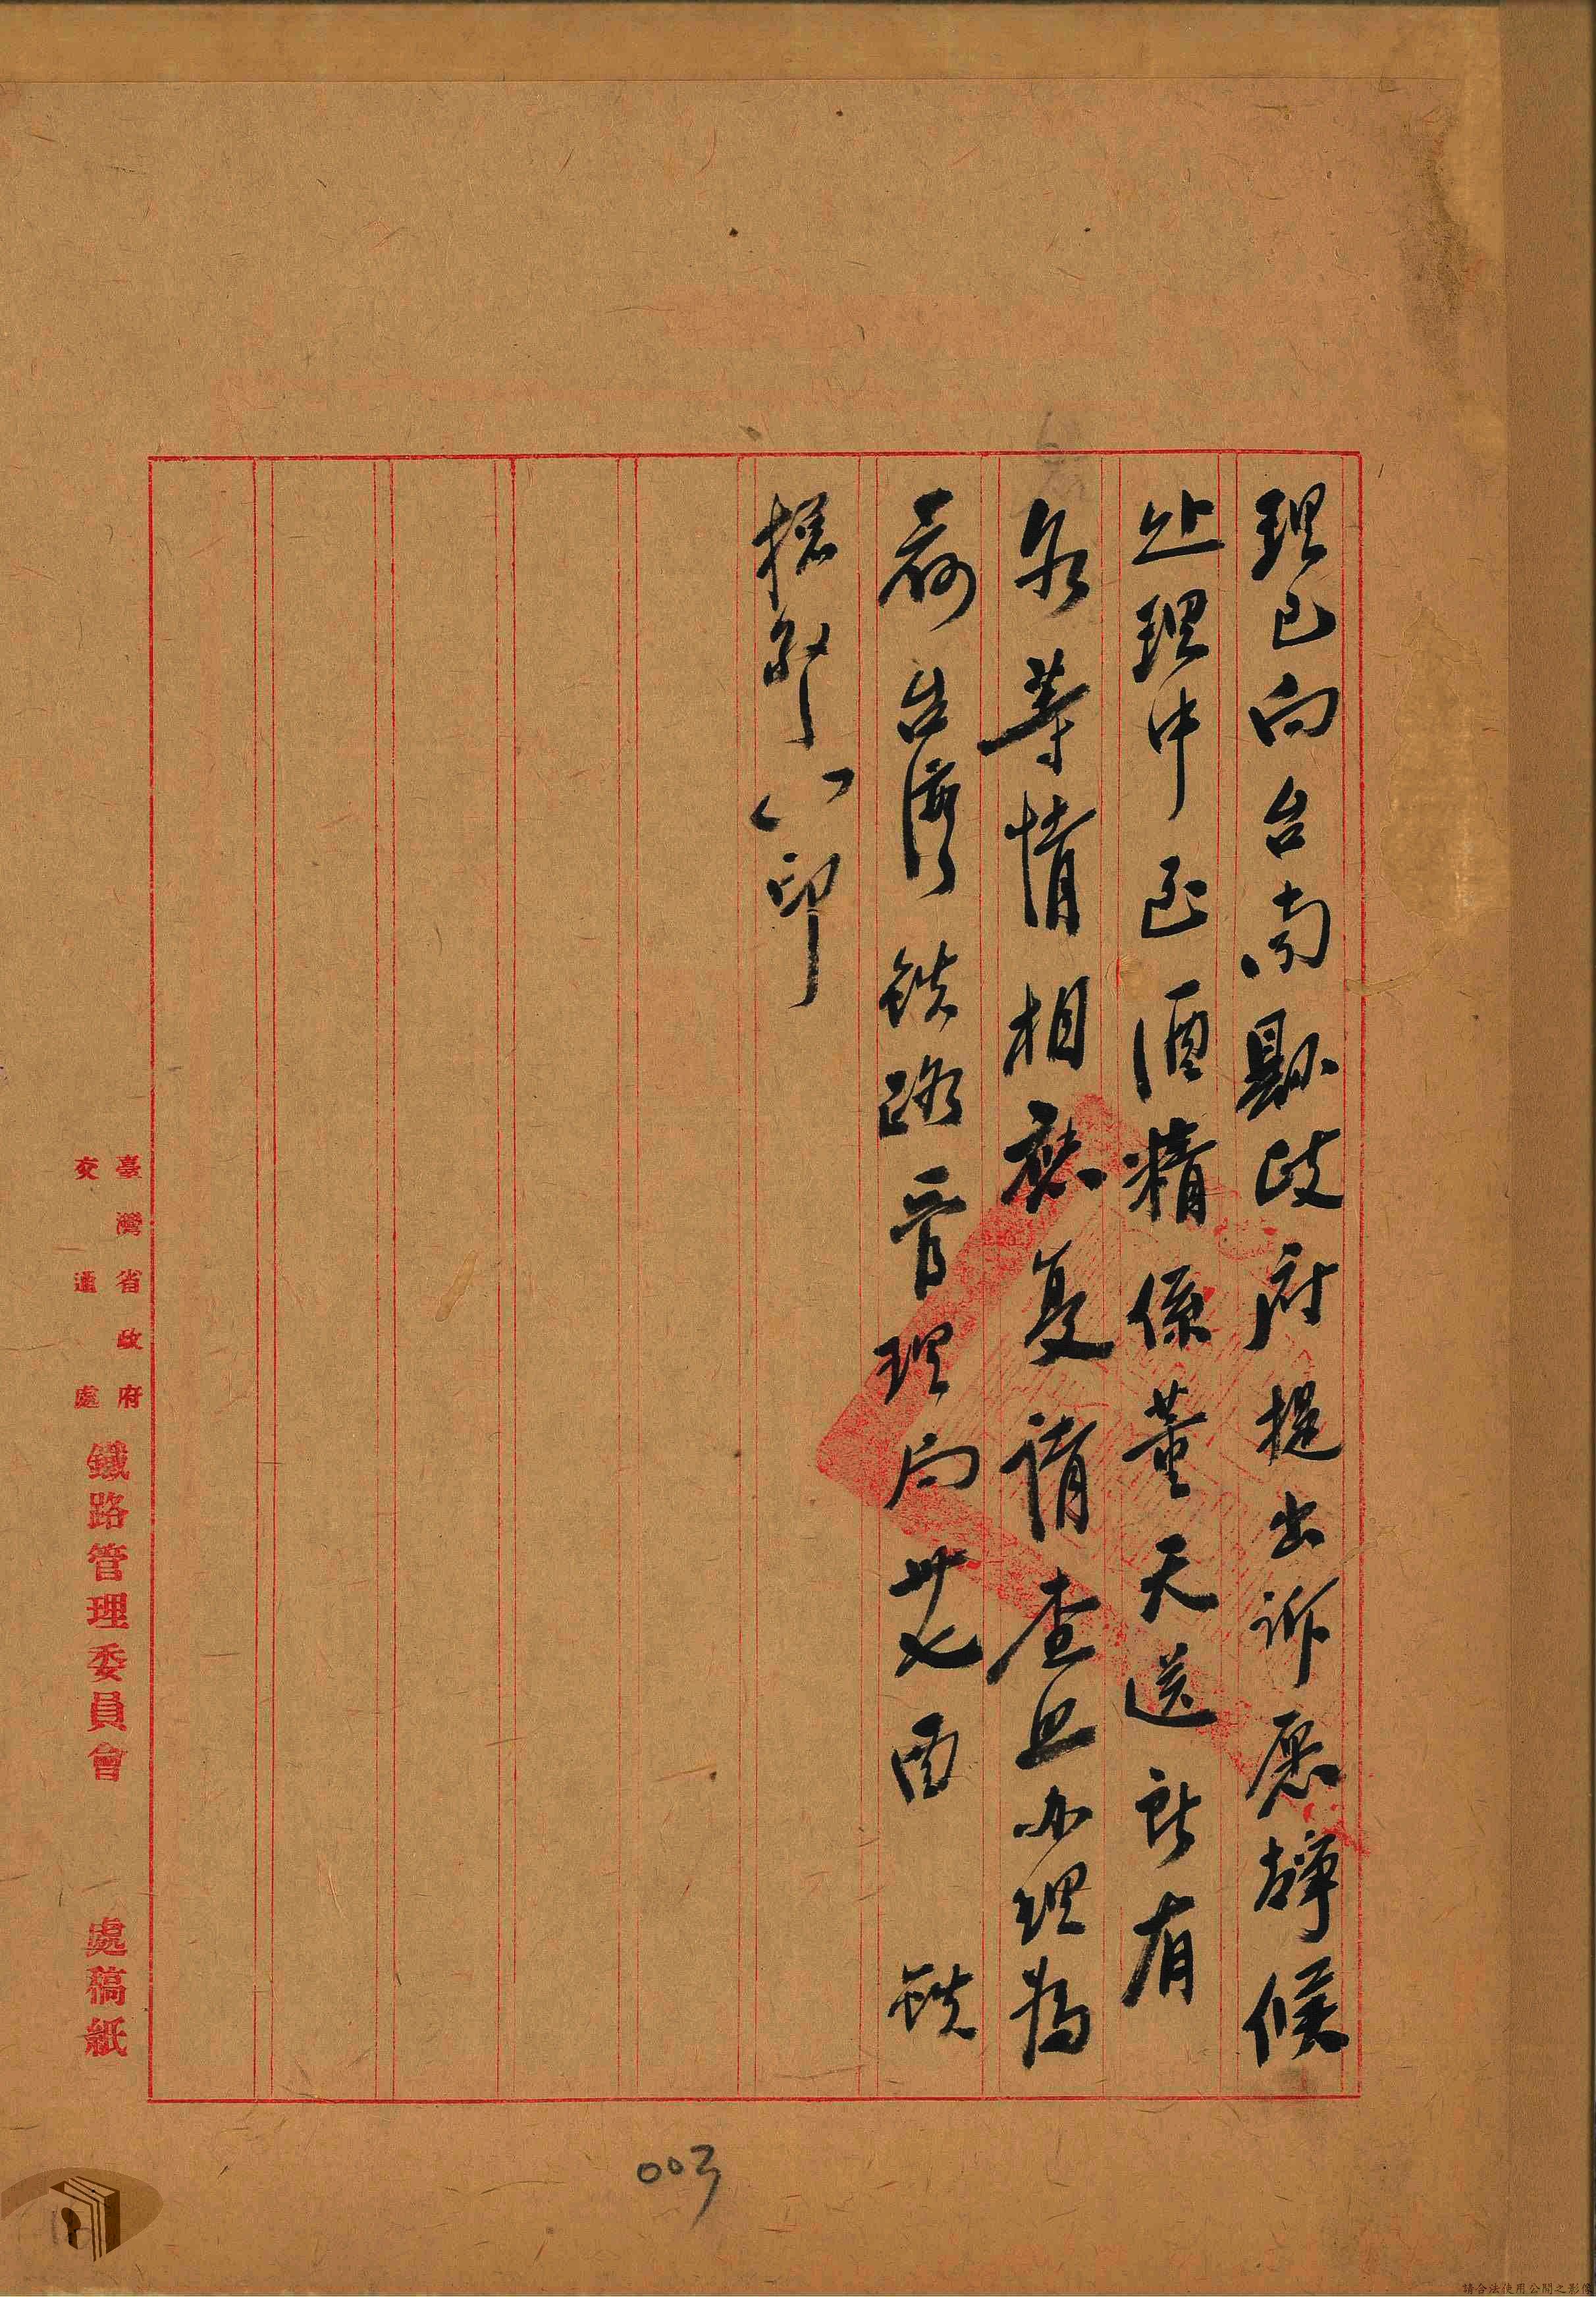 理已向台南縣政府提出訴愿靜候
処理中至酒精係董天送所有
亦等情相應復請查照办理為
荷台灣鉄路管理局卅七酉　鉄
印
臺灣省政府
交通處
鐵路管理委員會　處稿紙
003
請合法使用公開之影像